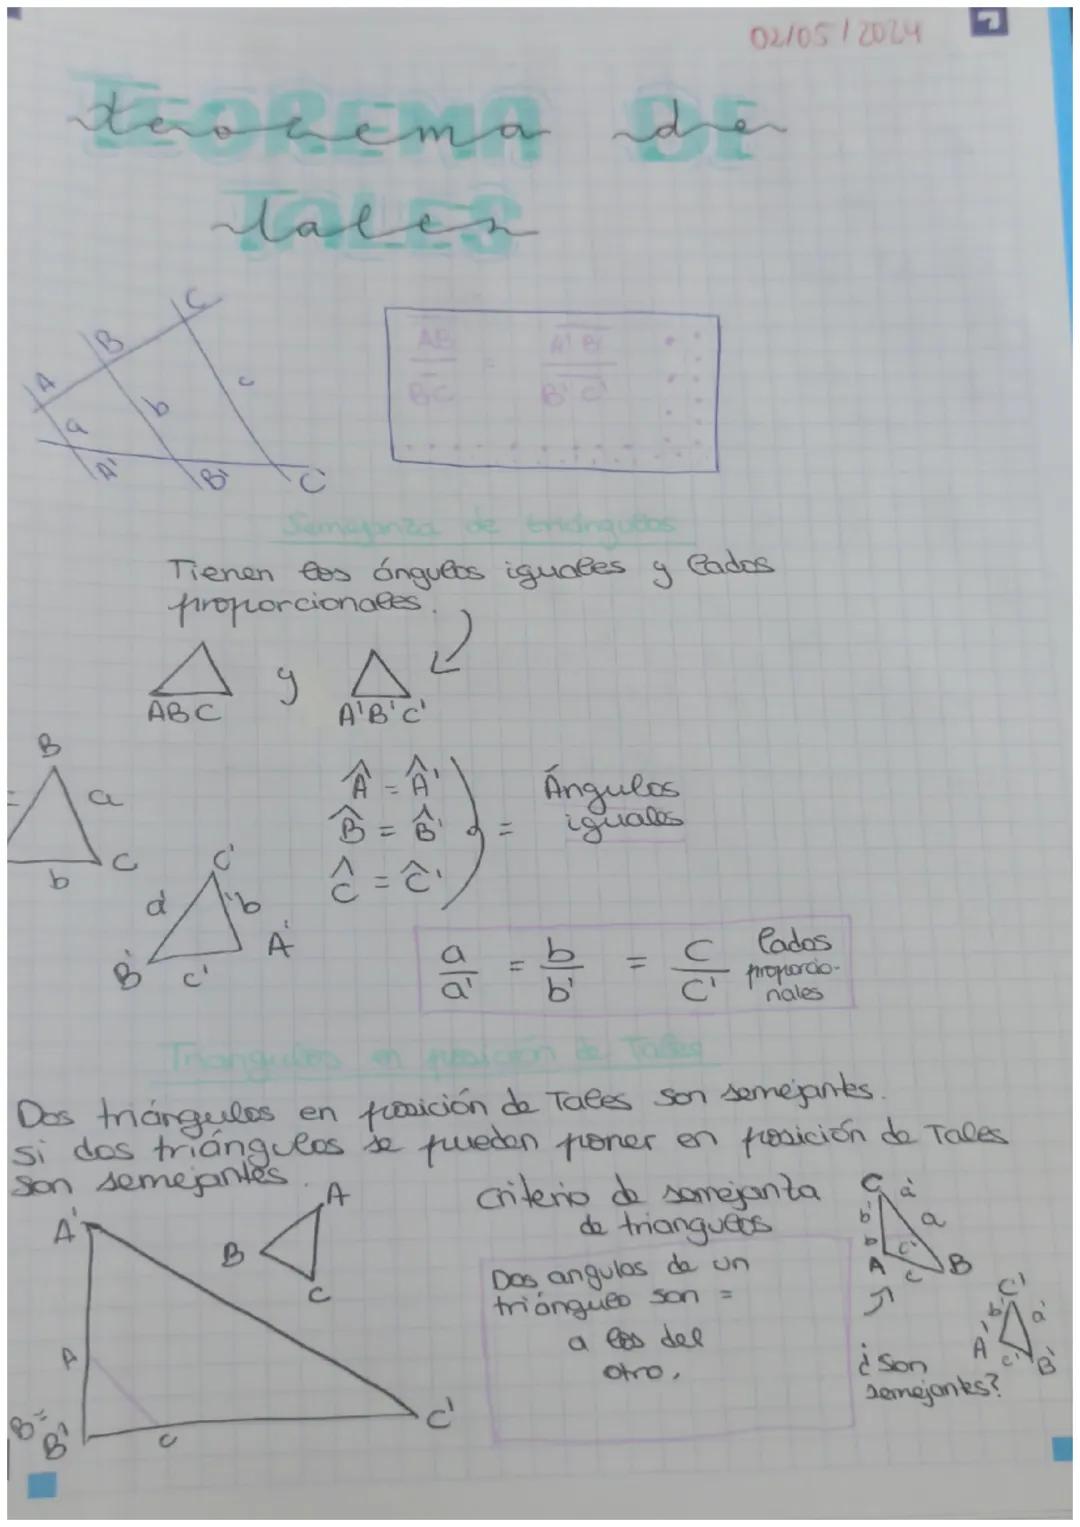 02/05/2024
TEOREMA DE
teorema de
TALES
tales
C
B
A
c
b
a
A'
B'
C'
AB = A'B'
BC B'C'
Semejanza de triángulos
Tienen los ángulos iguales y lados
proporcionales.
y
ABC A'B'C'
B
a
C
b
C'
d 'b
A'
B' c'
Â = Â'
B̂ = B̂' = Ángulos
iguales
Ĉ = Ĉ'
a = b = c lados
a' b' c' proporcio-
nales
Triangulos en posición de Tales
Dos triángulos en posición de Tales son semejantes.
si dos triángulos se pueden poner en posición de Tales
son semejantes.
A'
A
B
C
A
B=
B'
C
C'
criterio de semejanza
de triangulos
Dos angulos de un
triángulo son =
a los del
otro.
C a'
b' a
b c'
A c B
C'
b' a'
A' c' B'
¿Son
semejantes?